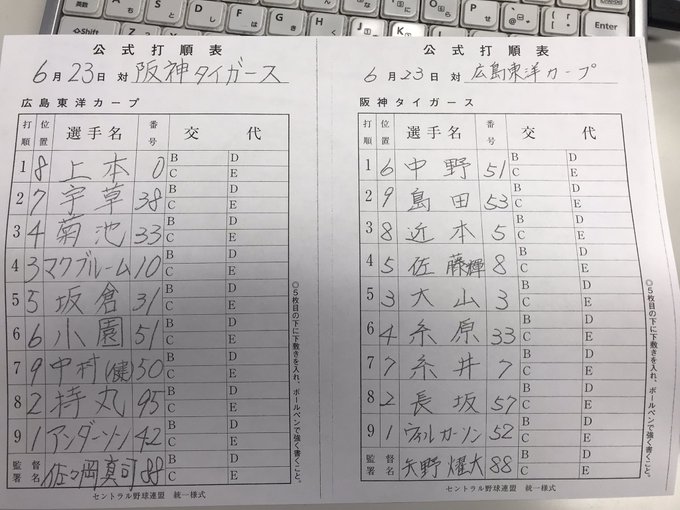 公式打順表
6月23日 対 阪神タイガース
広島東洋カープ
打順 位置 選手名 番号 交代
1 8 上本 0 B D C E
2 7 宇草 38 B D C E
3 4 菊池 33 B D C E
4 3 マクブルーム 10 B D C E
5 5 坂倉 31 B D C E
6 6 小園 51 B D C E
7 9 中村(健) 50 B D C E
8 2 持丸 95 B D C E
9 1 アンダーソン 42 B D C E
監督署名 佐々岡真司 88 B D C E
セントラル野球連盟 統一様式
公式打順表
6月23日 対 広島東洋カープ
阪神タイガース
打順 位置 選手名 番号 交代
1 6 中野 51 B D C E
2 9 島田 53 B D C E
3 8 近本 5 B D C E
4 5 佐藤輝 8 B D C E
5 3 大山 3 B D C E
6 4 糸原 33 B D C E
7 7 糸井 7 B D C E
8 2 長坂 57 B D C E
9 1 ウィルカーソン 52 B D C E
監督署名 矢野燿大 88 B D C E
セントラル野球連盟 統一様式
◎5枚目の下に下敷きを入れ、ボールペンで強く書くこと。